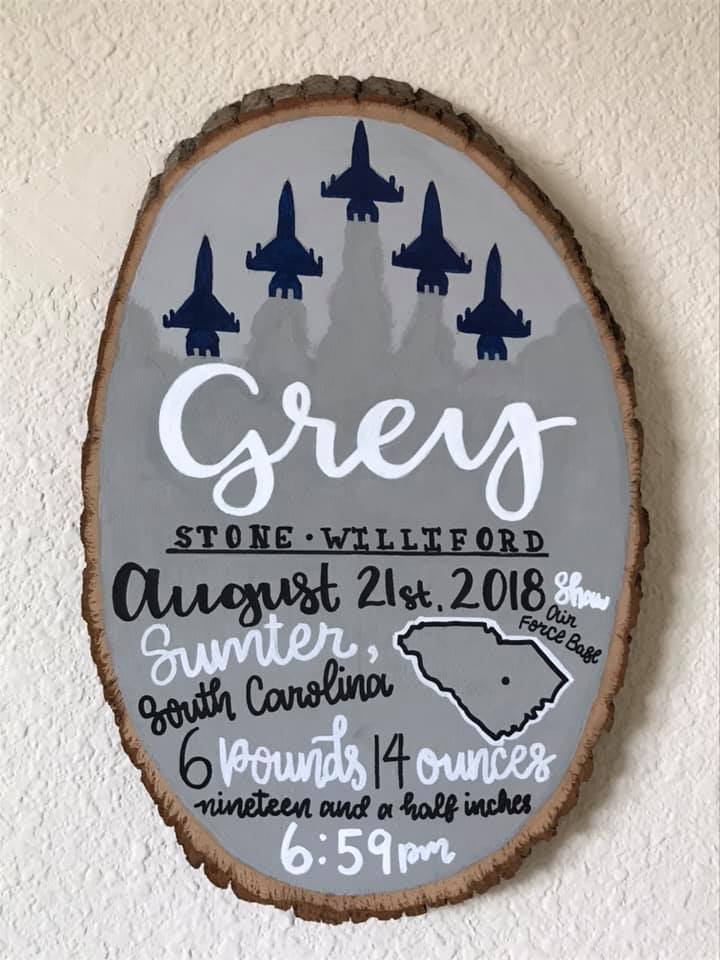 Grey
STONE · WILLIFORD
august 21st, 2018 Shaw
Air
Force Base
Sumter,
South Carolina
6 pounds 14 ounces
nineteen and a half inches
6:59pm